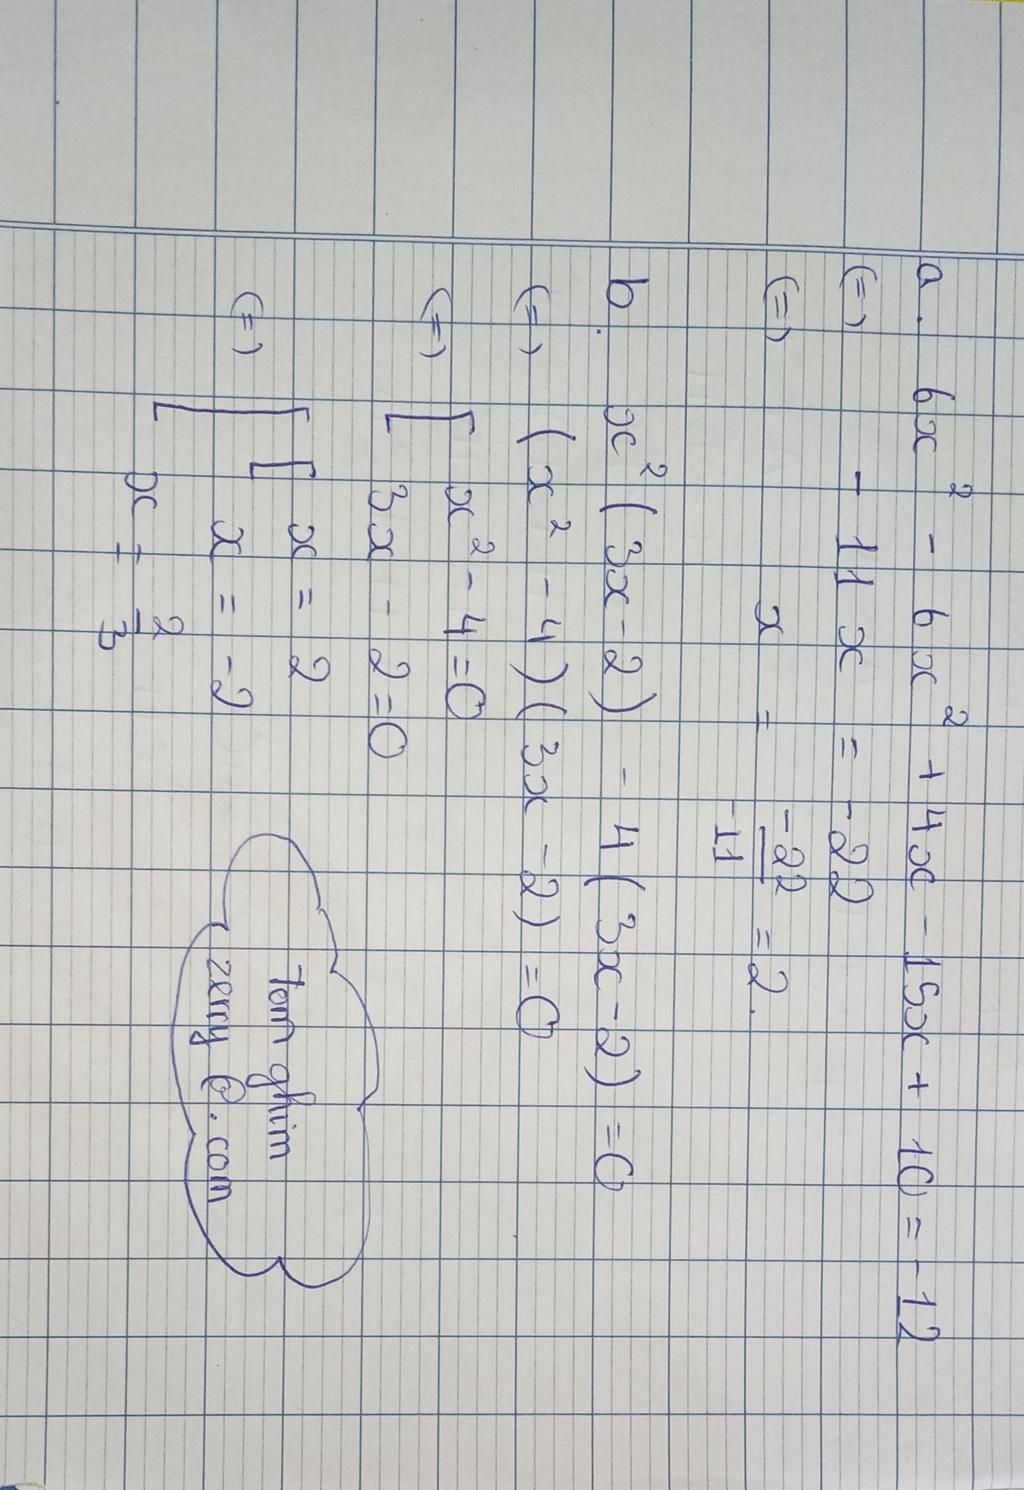 a. 6x² - 6x² + 4x - 15x + 10 = -12
(=) - 11x = -22
(=) x = -22/-11 = 2.
b. x²(3x-2) - 4(3x-2) = 0
(=) (x² - 4)(3x - 2) = 0
(=) [ x² - 4 = 0
3x - 2 = 0
(=) [ [ x = 2
x = -2
x = 2/3
Tom ghim
zerry @.com